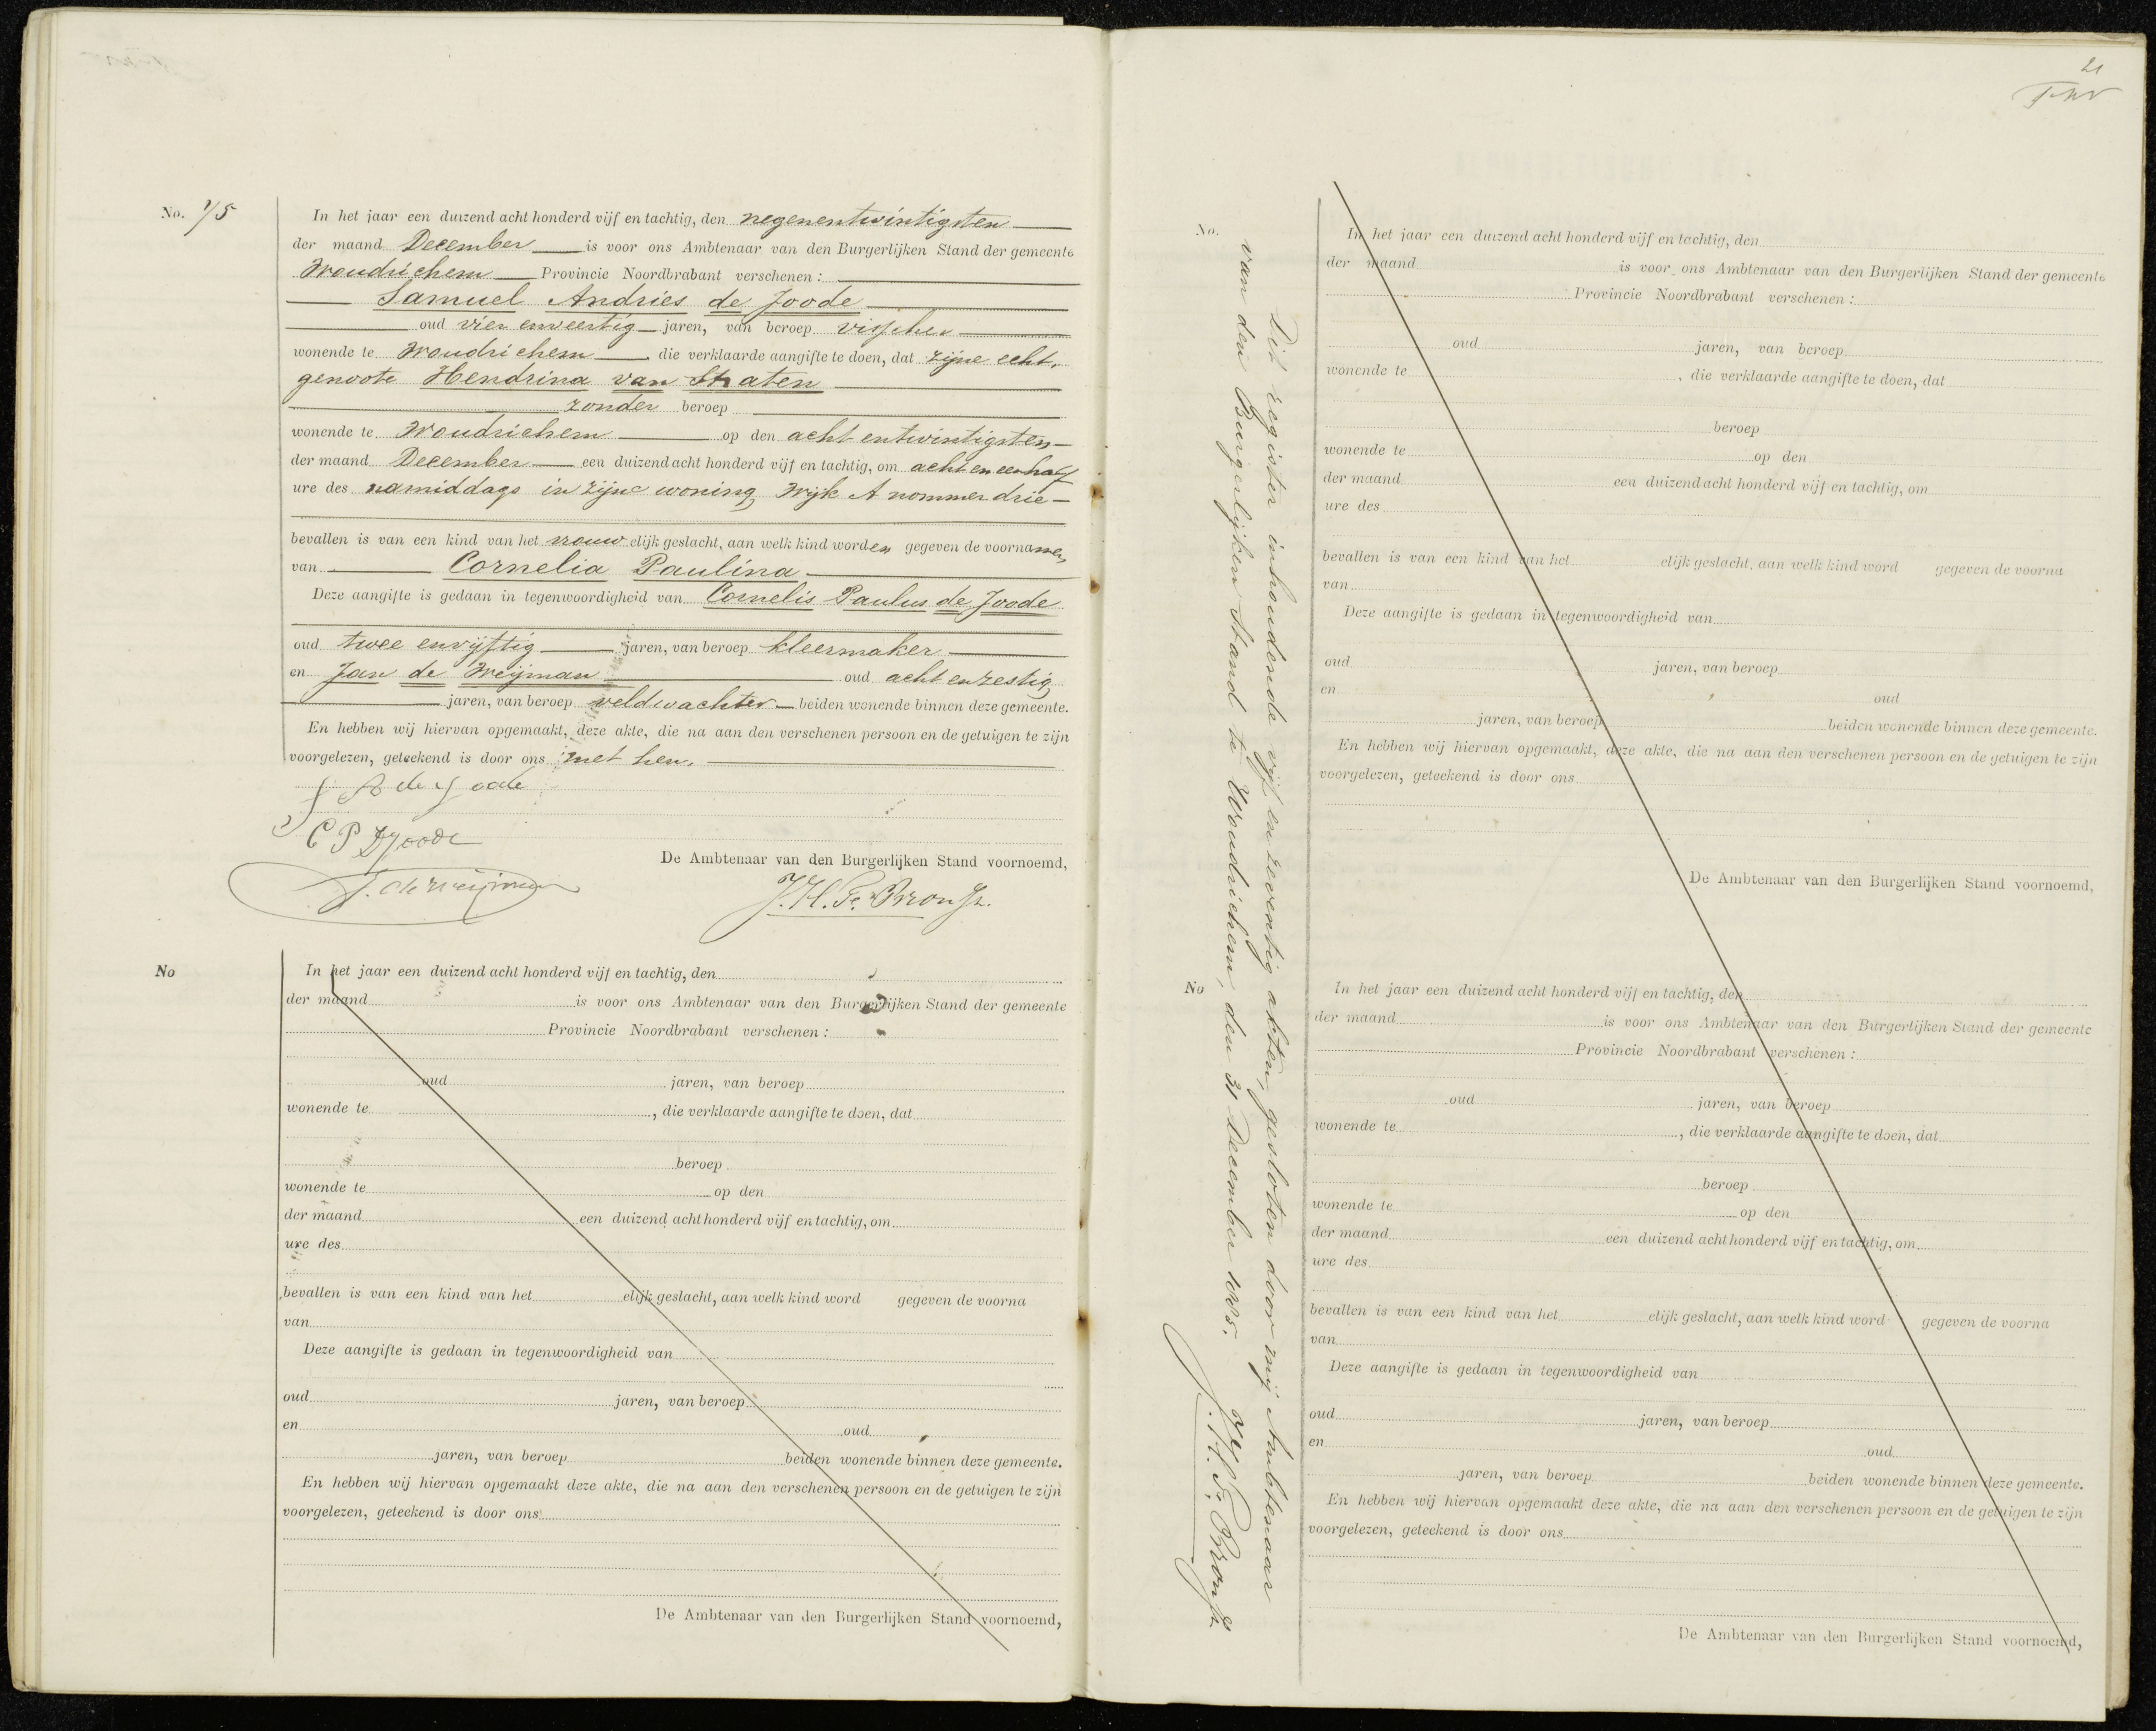 No. 75
In het jaar een duizend acht honderd vijf en tachtig, den negenentwintigsten
der maand December is voor ons Ambtenaar van den Burgerlijken Stand der gemeente
Woudrichem Provincie Noordbrabant verschenen:
Samuel Andries de Joode
oud vier enveertig jaren, van beroep visscher
wonende te Woudrichem die verklaarde aangifte te doen, dat zijne echt,
genoote Hendrina van Straten
zonder beroep
wonende te Woudrichem op den acht entwintigsten
der maand December een duizend acht honderd vijf en tachtig, om acht en een half
ure des namiddags in zijne woning, Wijk A nommer drie
bevallen is van een kind van het vrouwelijk geslacht, aan welk kind worden gegeven de voornamen
van Cornelia Paulina
Deze aangifte is gedaan in tegenwoordigheid van Cornelis Paulus de Joode
oud twee envijftig jaren, van beroep kleermaker
en Jan de Weijman oud acht enzestig
jaren, van beroep veldwachter beiden wonende binnen deze gemeente.
En hebben wij hiervan opgemaakt, deze akte, die na aan den verschenen persoon en de getuigen te zijn
voorgelezen, geteekend is door ons met hen.
S A de Joode
C P D Joode
De Ambtenaar van den Burgerlijken Stand voornoemd,
J. de Weijman
J. H. F.
No
In het jaar een duizend acht honderd vijf en tachtig, den
der maand is voor ons Ambtenaar van den Burgerlijken Stand der gemeente
Provincie Noordbrabant verschenen:
oud jaren, van beroep
wonende te , die verklaarde aangifte te doen, dat
beroep
wonende te op den
der maand een duizend acht honderd vijf en tachtig, om
ure des
bevallen is van een kind van het elijk geslacht, aan welk kind word gegeven de voorna
van
Deze aangifte is gedaan in tegenwoordigheid van
oud jaren, van beroep
en oud
jaren, van beroep beiden wonende binnen deze gemeente.
En hebben wij hiervan opgemaakt deze akte, die na aan den verschenen persoon en de getuigen te zijn
voorgelezen, geteekend is door ons
De Ambtenaar van den Burgerlijken Stand voornoemd,
21
Dit register inhoudende vijf en zeventig akten, gesloten door mij Ambtenaar
van den Burgerlijken Stand te Woudrichem, den 31 December 1885.
J. H. F.
No.
In het jaar een duizend acht honderd vijf en tachtig, den
der maand is voor ons Ambtenaar van den Burgerlijken Stand der gemeente
Provincie Noordbrabant verschenen:
oud jaren, van beroep
wonende te , die verklaarde aangifte te doen, dat
beroep
wonende te op den
der maand een duizend acht honderd vijf en tachtig, om
ure des
bevallen is van een kind van het elijk geslacht, aan welk kind word gegeven de voorna
van
Deze aangifte is gedaan in tegenwoordigheid van
oud jaren, van beroep
en oud
jaren, van beroep beiden wonende binnen deze gemeente.
En hebben wij hiervan opgemaakt, deze akte, die na aan den verschenen persoon en de getuigen te zijn
voorgelezen, geteekend is door ons
De Ambtenaar van den Burgerlijken Stand voornoemd,
No
In het jaar een duizend acht honderd vijf en tachtig, den
der maand is voor ons Ambtenaar van den Burgerlijken Stand der gemeente
Provincie Noordbrabant verschenen:
oud jaren, van beroep
wonende te , die verklaarde aangifte te doen, dat
beroep
wonende te op den
der maand een duizend acht honderd vijf en tachtig, om
ure des
bevallen is van een kind van het elijk geslacht, aan welk kind word gegeven de voorna
van
Deze aangifte is gedaan in tegenwoordigheid van
oud jaren, van beroep
en oud
jaren, van beroep beiden wonende binnen deze gemeente.
En hebben wij hiervan opgemaakt deze akte, die na aan den verschenen persoon en de getuigen te zijn
voorgelezen, geteekend is door ons
De Ambtenaar van den Burgerlijken Stand voornoemd,